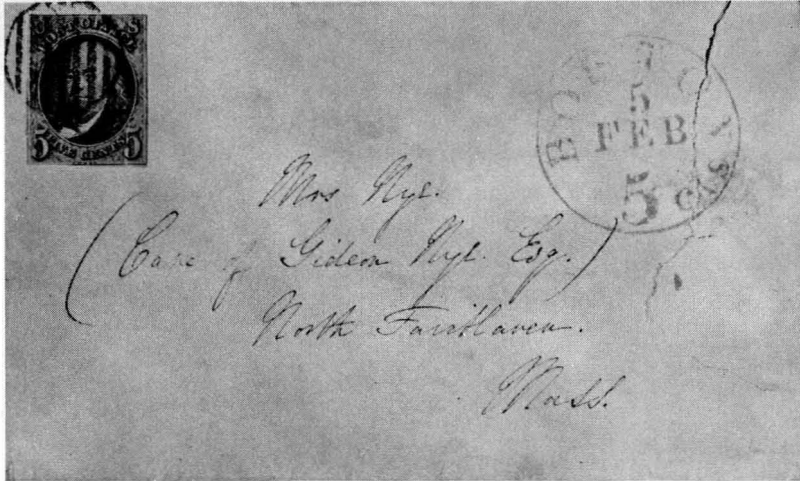 POST OFFICE
5 FIVE CENTS 5
BOSTON
5
FEB
5 cts
Mrs Nye.
(Care of Gideon Nye. Esq.)
North Fairhaven.
Mass.